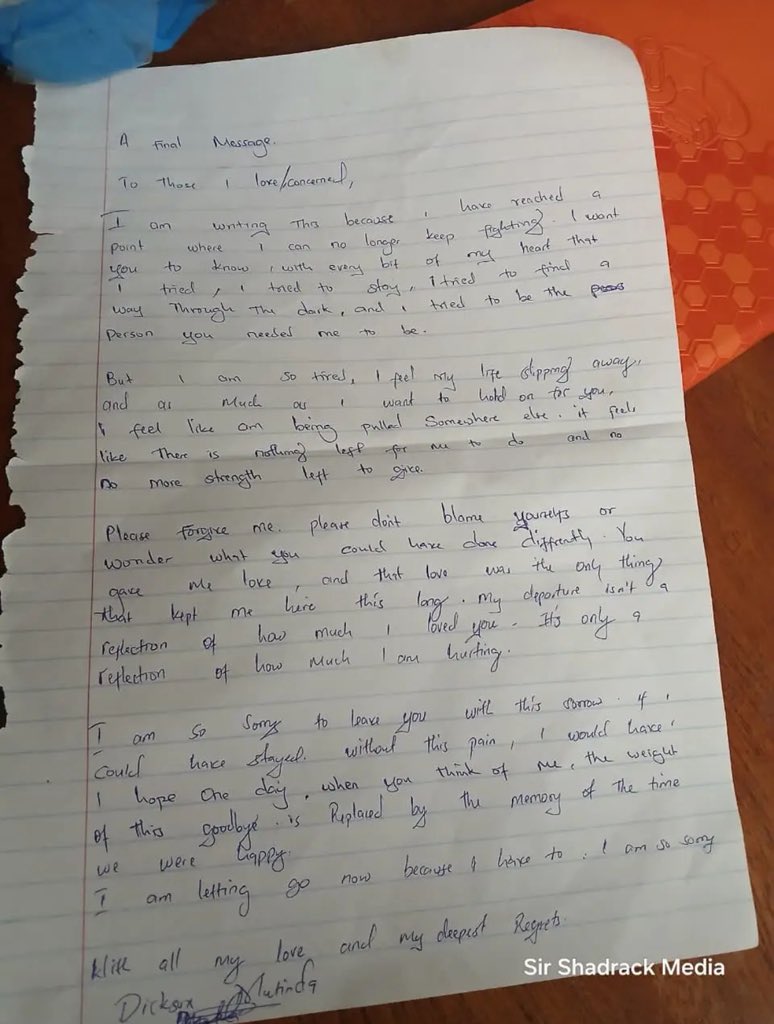 A Final Message.
To Those I love/concerned,
I am writing This because i have reached a
point where I can no longer keep fighting. I want
you to know, with every bit of my heart that
I tried, i tried to stay, i tried to find a
way Through The dark, and i tried to be the
person you needed me to be.
But I am so tired, I feel my life slipping away,
and as Much as I want to hold on for you,
I feel like am being pulled Somewhere else. it feels
like There is nothing left for me to do and no
no more strength left to give.
Please Forgive me. please don't blame yourselfs or
wonder what you could have done diffrently. You
gave Me love, and that love was the only thing
that kept me here this long. My departure isn't a
reflection of how much I loved you. It's only a
reflection of how Much I am hurting.
I am so sorry to leave you with this sorrow. if i
Could have stayed without this pain, I would have.
I hope One day, when you think of me, the weight
of this goodbye is Replaced by the memory of The time
we were happy.
I am letting go now because i have to. I am so sorry
With all my love and my deepest Regrets.
Dickson Mutinda
Sir Shadrack Media